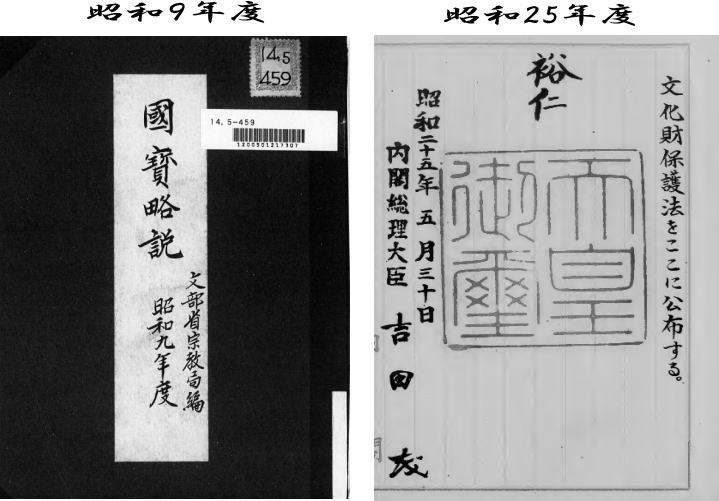 昭和9年度
14.5
459
14.5-459
1200501217307
國寶略説
文部省宗教局編
昭和九年度
昭和25年度
文化財保護法をここに公布する。
裕仁
天皇
御璽
昭和二十五年五月三十日
内閣総理大臣 吉田茂